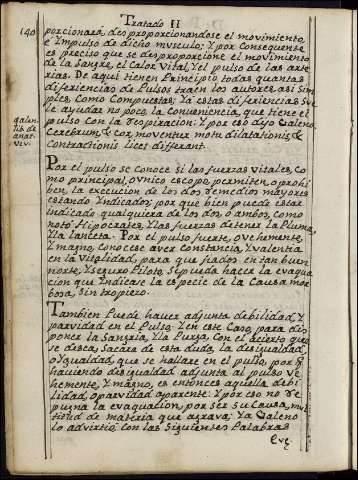 Tratado II
140
porcionara, desproporcionandose el movimiento,
e Ympulso de dicho musculo; Y por Consequense
es preciso que se desproporcione el movimiento
de la Sangre, el Calor Vital, Y el pulso de las arte
rias. De aqui tienen Principio todas quantas
diferiencias de Pulsos traen los autores, asi Sim
ples, Como Compuestas; Ya estas diferiencias Su
le ayudar no poca la Conveniencia, que tiene el
pulso con la Respiracion: Y por eso dijo Galeno
Cerebrum, & cor, moventur motu dilatationis, &
contractionis licet differant.
galen
lib. de
anat.
viv.
Por el pulso se conoce si las fuerzas Vitales, Co
mo principal, o Vnico escopo, permiten, o prohi
ben, la execucion de los dos Remedios mayores
estando Yndicados; por que bien puede estar
indicado qualquiera de los dos, o ambos, como
notó Hipocrates, Y las fuerzas detener la Pluma,
Y la lanceta. Por el pulso fuerte, o vehemente,
Y magno, Conocese aver Constancia, Y valentia
en la Vitalidad, para que fiados en tan buen
norte, Y Seguro Piloto, Se pueda hacer la evaqua
cion que Yndicare la especie de la Causa mor
bosa, Sin tropiero.
Tambien Puede haver adjunta debilidad, Y
parvidad en el Pulso. Y en este Caso, para dis
poner la Sangria, Y la Purga, Con el acierto que
se desea, Sacara de esta duda, la desigualdad,
o Ygualdad, que se hallare en el pulso; por q
haviendo desigualdad adjunta al pulso Ve
hemente, Y magno, es entonces aquella debi
lidad, o parvidad aparente: Y por eso no Re
pugna la evaquacion, por Ser su Causa, mul
titud de materia que agrava: Ya Galeno
lo advirtió con las Siguientes Palabras